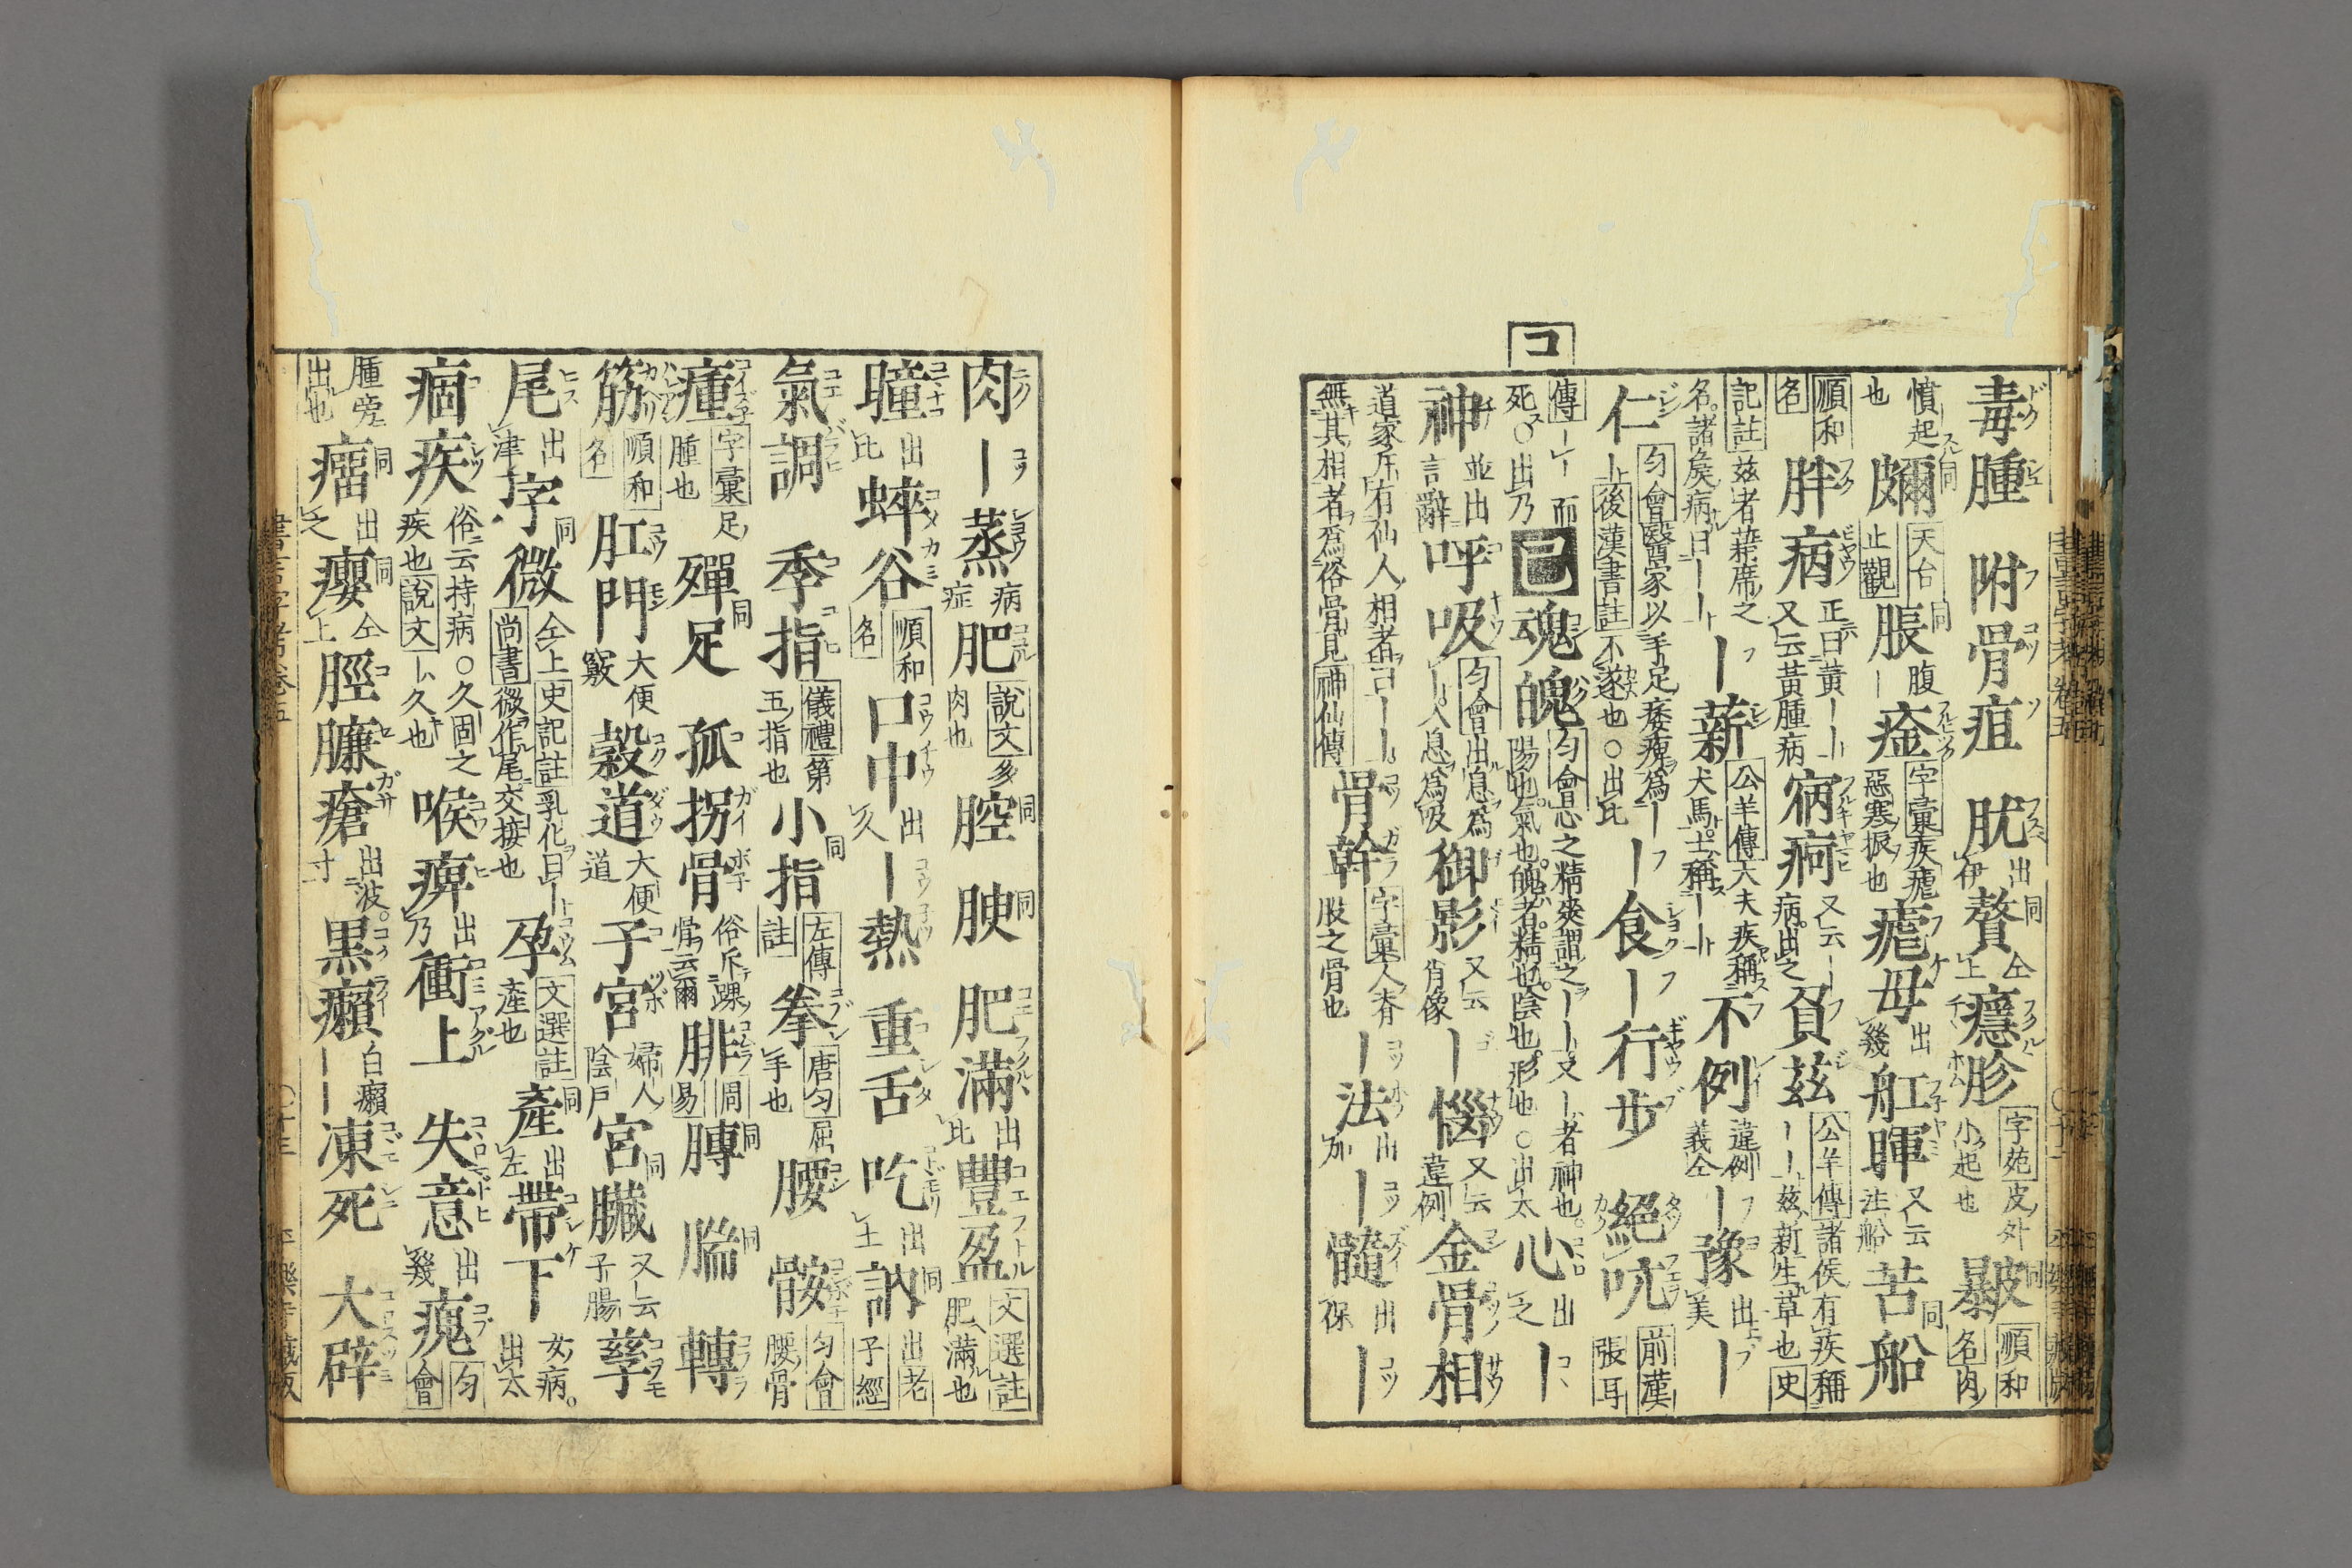 毒腫 附骨疽 肬 出伊 贅 同 仝上 癮胗 字苑皮外小起也 㿺 同 順和名肉
憤起也 䫥 同 天台止觀 脹 同 腹― 㽷 字彙疾瘧惡寒振也 瘧母 出幾 舡暉 又云注船 苦船 同
順和名 胖病 正曰黃――又云黃腫病 病痾 又云―病出之 負茲 公羊傳諸侯有疾稱――茲新生草也史
記註茲者藉席之名諸矦病曰―― ―薪 公羊傳大夫疾稱犬馬士稱―― 不例 違例義仝 ―豫 出美 ―
仁 匀會醫家以手足痿痺為――上後漢書註不遂也○出比 ―食 ―行步 絕吭 前漢張耳
傳―而死○出乃 己 魂魄 匀會心之精爽謂之――又―者神也陽也氣也魄者精也陰也形也○出太 心 出乏 ―
神 並出言辭 呼吸 匀會出息為―人息為吸 御影 又云肖像 ―惱 又云違例 金骨相
道家斥有仙人相者曰――無其相者為俗骨見神仙傳 骨幹 字彙人脊股之骨也 ―法 出加 ―髓 出保 ―
コ
肉 ―蒸 病症 肥 說文多肉也 腔 同 腴 同 肥滿 出比 豐盈 文選註肥滿也
瞳 出比 蜶谷 順和名 口中 出久 ―熱 重舌 吃 出土 訥 同 出老子經
氣調 季指 儀禮第五指也 小指 同 左傳註 拳 唐匀屈手也 腰 骸 匀會腰骨
瘇 字彙足腫也 殫足 同 孤拐骨 俗斥踝骨云爾 腓 周易 膞 同 腨 同 轉
筋 順和名 肛門 大便竅 穀道 大便道 子宮 婦人陰戶 宮臟 同 又云子腸 孳
尾 出津 字微 同 仝上史記註乳化曰―尚書微作尾交接也 孕 文選註產也 產 同 出左 帶下 女病出太
痼疾 俗云持病○久固之疾也說文―久也 喉痺 出乃 衝上 失意 出幾 瘣 匀會
腫旁出也 瘤 同 出乏 癭 同 仝上 脛臁瘡 出波寸 黑癩 白癩―― 凍死 大辟